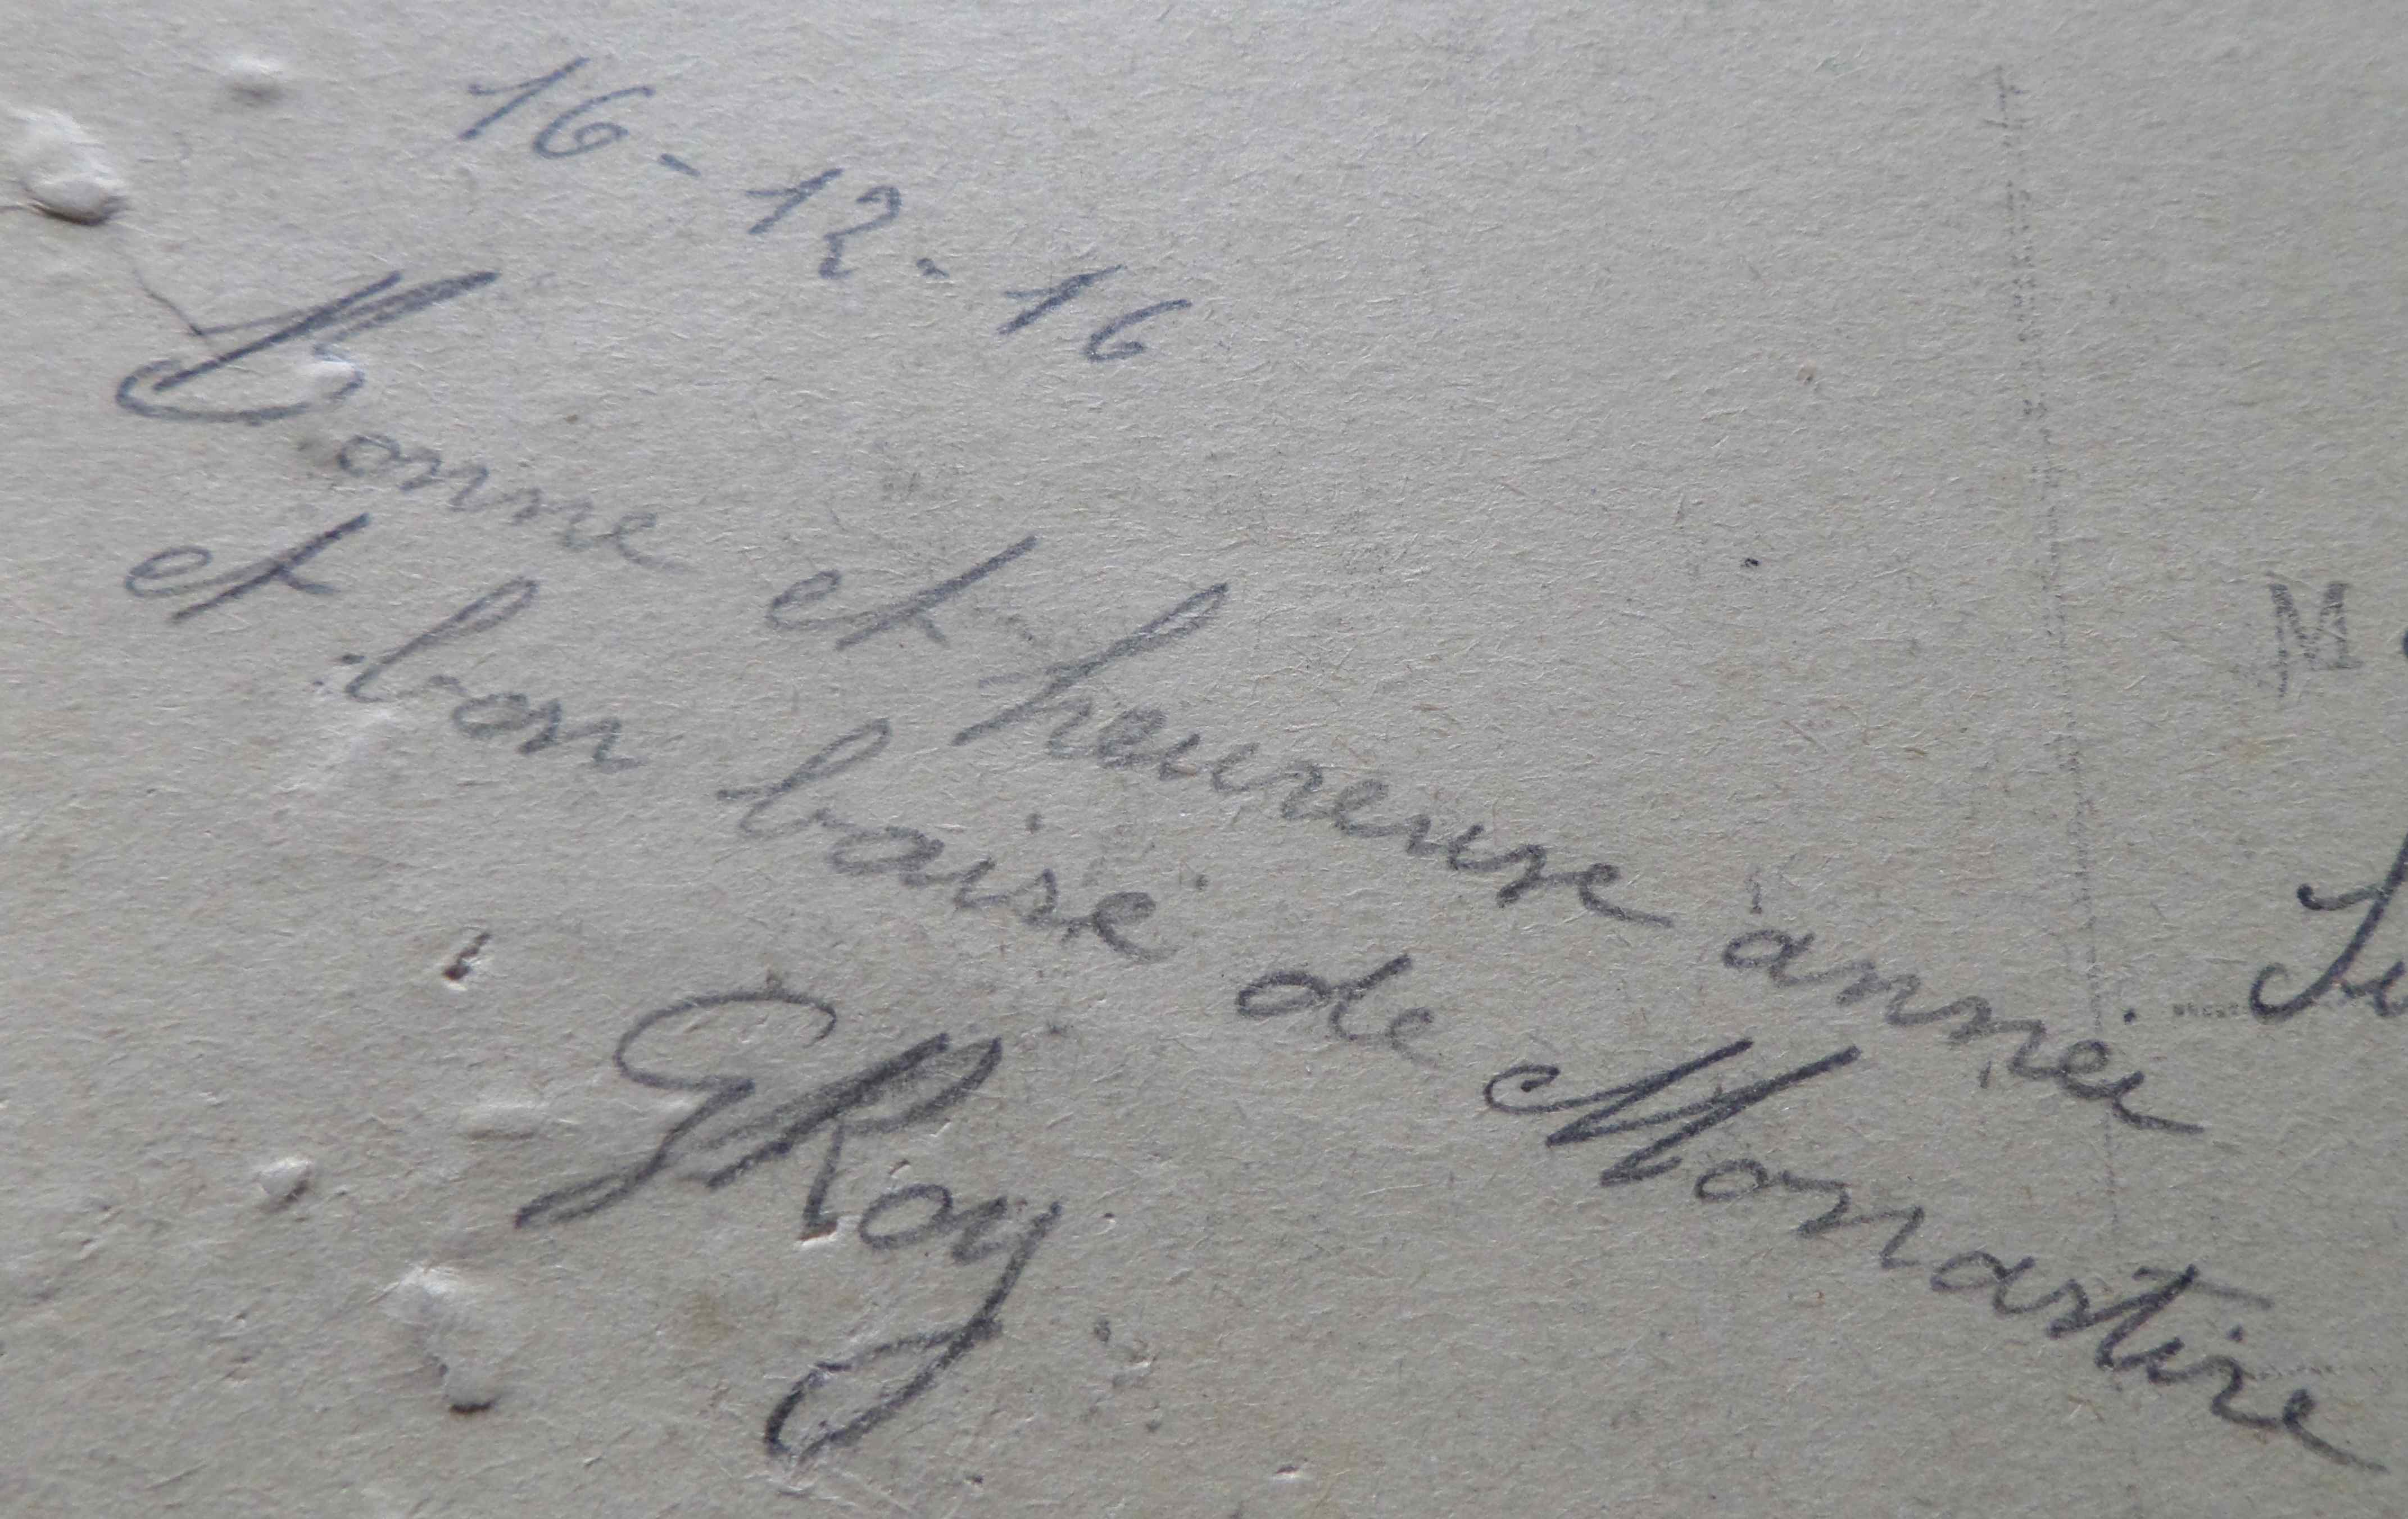 16-12-16
Bonne et heureuse année
et bon baisé de Monastire
GRoy
M